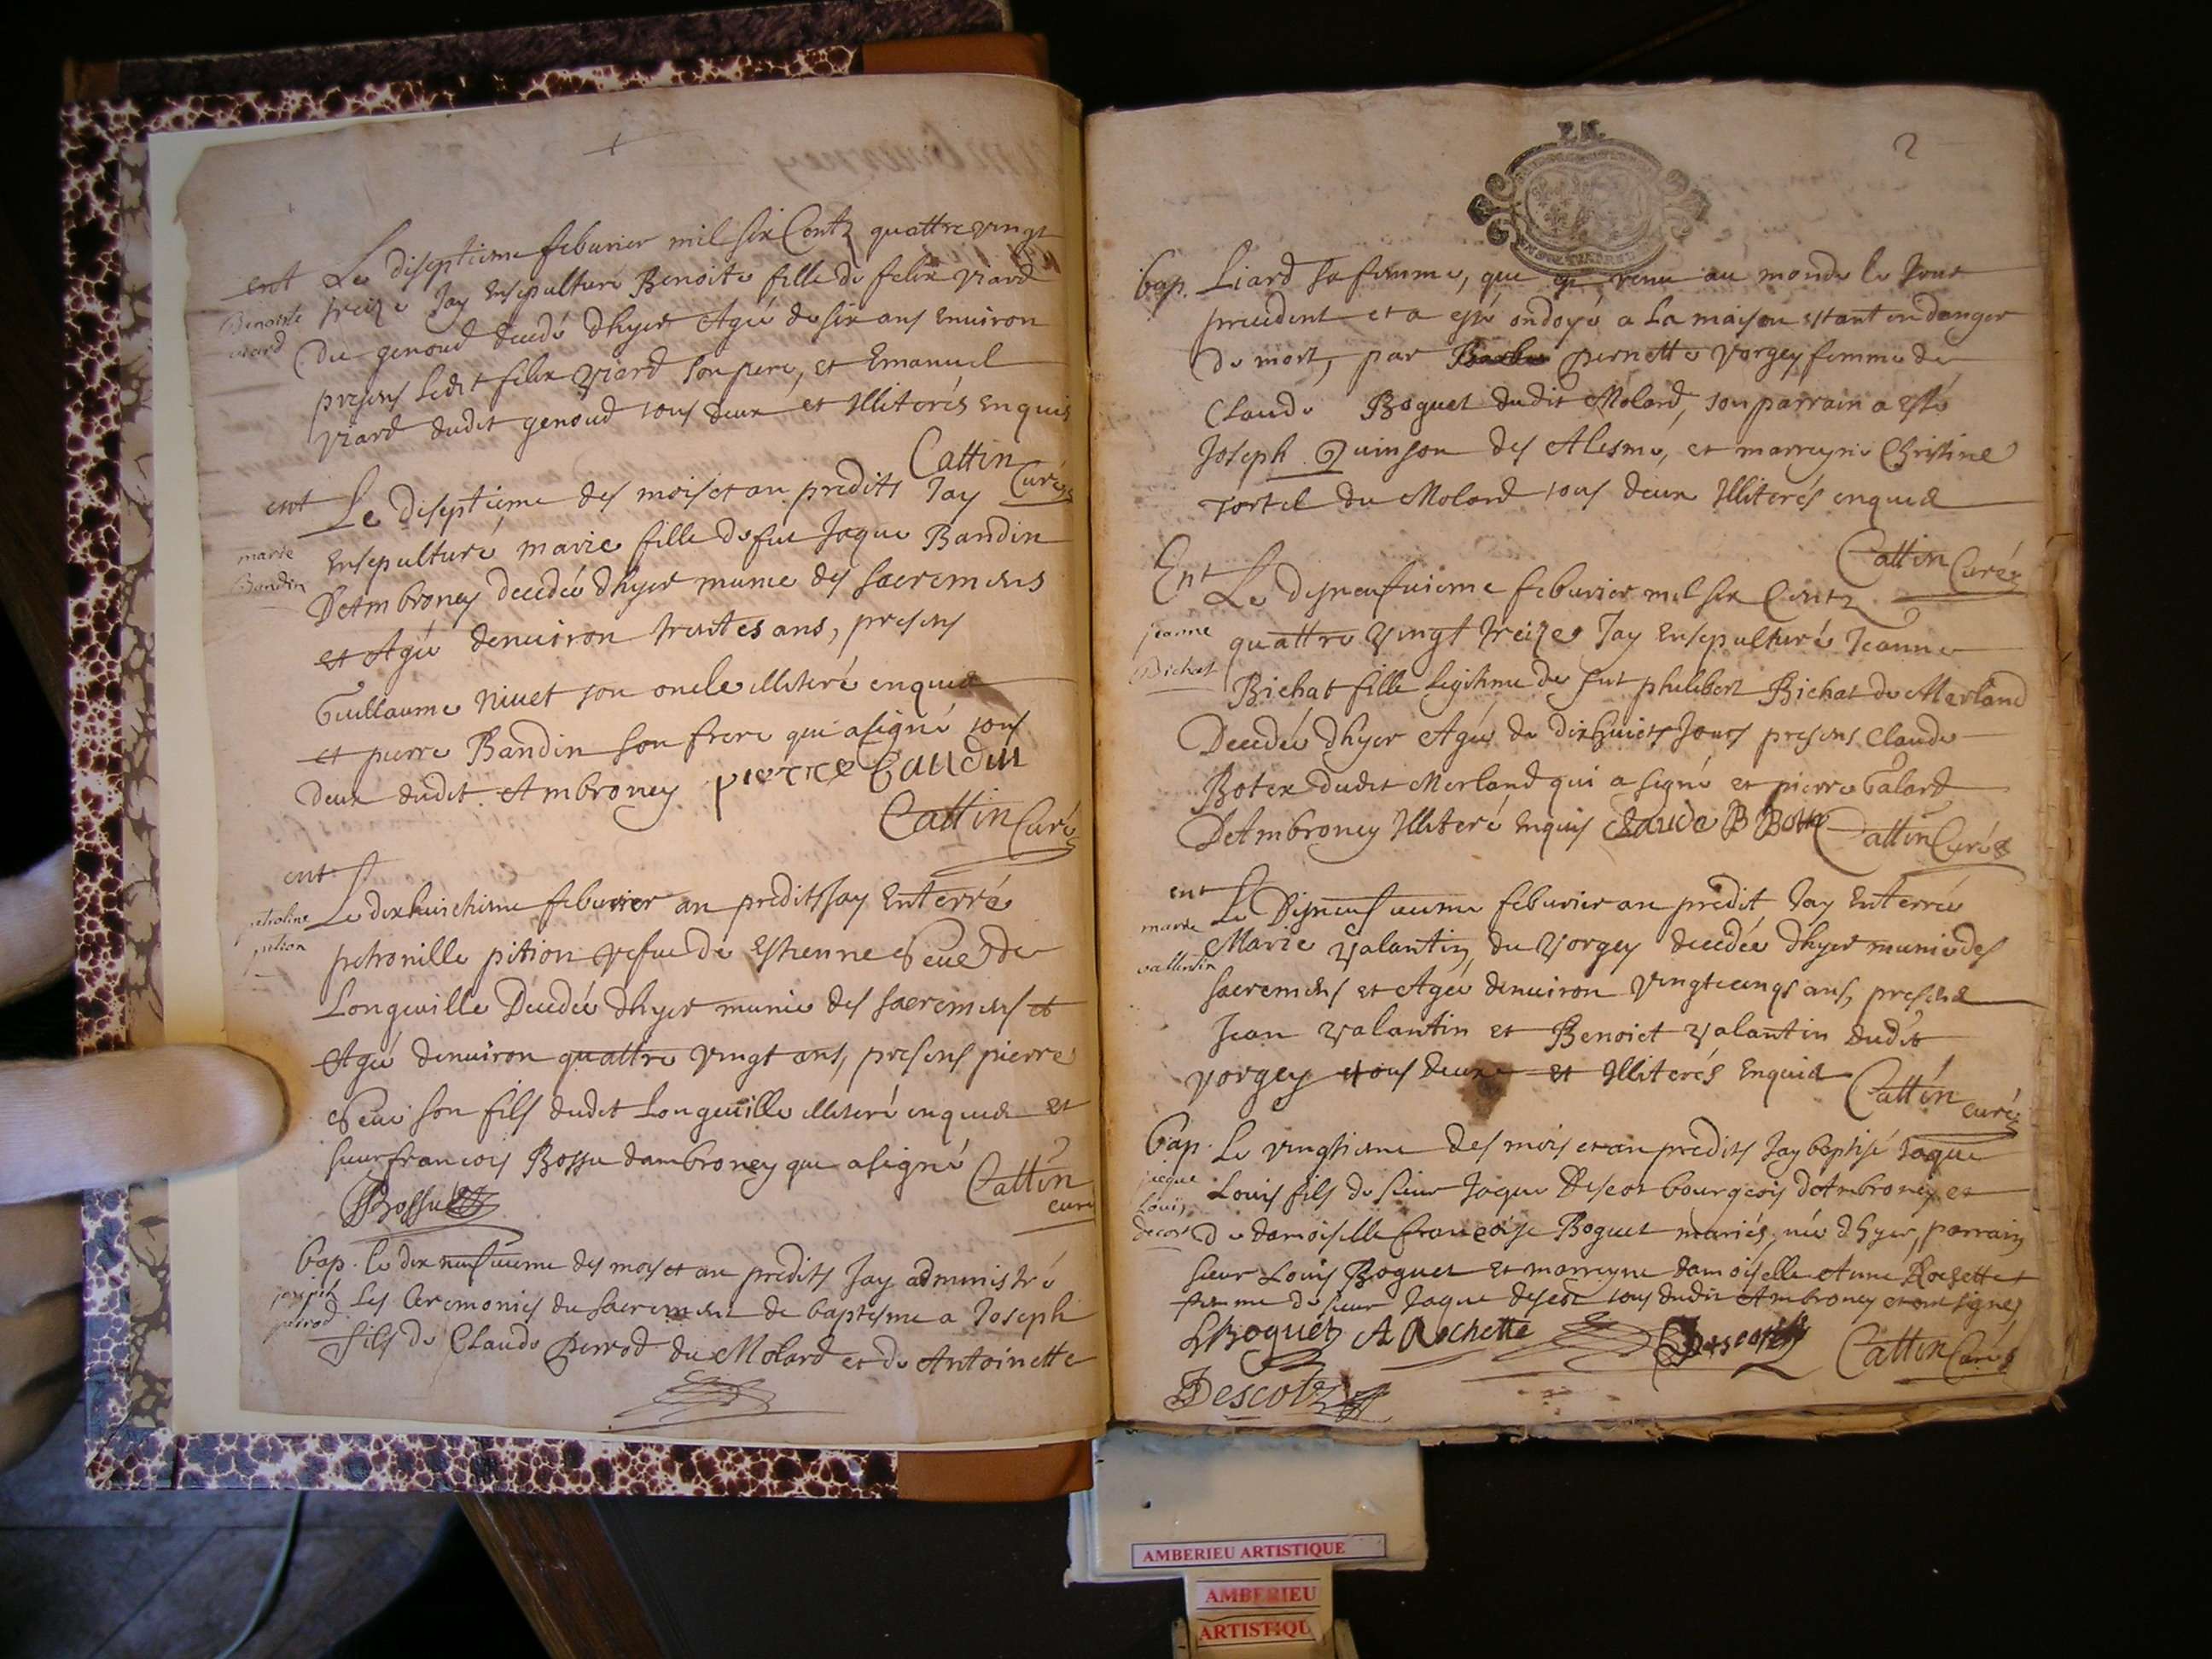 ent Le diseptieme feburier mil six Centz quattre vingt
Benoiste viard
treize Jay Ensepulturé Benoite fille de felix viard
du genoud decedé dhyer Agée de six ans Environ
presens ledit felix viard son pere, et Emanuel
viard dudit genoud tous deux et Illiterés Enquis
Cattin Curé
ent Le diseptieme des mois et an predits Jay
marie Bandin
Ensepulturé marie fille de fut Jaque Bandin
DeAmbroney decedée dhyer munie des sacremens
et Agée denuiron trentes ans, presens
Guillaume nivet son oncle illiteré enquis
et pierre Bandin son frere qui a signé tous
Deux dudit Ambroney pierre bandin
Cattin Curé
ent
Le dixhuictieme feburier an predits Jay Enterré
petroline pition
petronille pition vefue de Estienne
Longeville Decedée dhyer munie des sacremens et
Agée denuiron quattre vingt ans, presens pierre
son fils dudit Longeuille illiteré enquis et
sieur francois Bossu dambroney qui a signé
Cattin curé
Bossu
bap. le dix neufuieme des mois et an predits Jay administré
joseph perrod
Les Ceremonies du sacrement de baptesme a Joseph
fils de Claude perrod du Molard et de Antoinette
2
bap. Liard sa femme, que est venu au monde le Jour
precedent et a esté ondoyé a La maison estant en danger
de mort, par pernette vorgey femme de
Claude Boguet dudit Molard, son parrain a esté
Joseph Quinson des Alesme, et marreyne Christine
tortel du Molard tous deux Illiterés enquis
Cattin Curé
Ent Le disneufuieme feburier mil six Centz
jeanne Bichat
quattre Vingt treize Jay Ensepulturé Jeanne
Bichat fille legitime de fut philibert Bichat de Merland
Decedée dhyer Agée de dixhuict Jours presens Claude
Botex dudit Merland qui a signé et pierre Galard
DeAmbroney Illiteré Enquis Claude B Cattin Curé
ent Le Disneufuieme feburier an predit Jay Enterrée
marie vallentin
Marie Valantin, du Vorgey decedée dhyer munie des
sacremens et Agée denuiron Vingtcinqs ans, presens
Jean Valantin et Benoict Valantin dudit
vorgey tous deux et Illiterés Enquis
Cattin curé
bap. Le vingtieme des mois et an predits Jay baptisé Jaque
jaque Louis decost
Louis fils de sieur Jaque Descot bourgeois dAmbroney et
de damoiselle francoise Boguet mariés, née dhyer, parrain
sieur Louis Boguet et marreyne damoiselle Anne Rochette
femme de sieur Jaque descot tous dudit Ambroney et ont signes
LBoguet A Rochette Descostz Cattin Curé
Descotz
AMBERIEU ARTISTIQUE
AMBERIEU
ARTISTIQU